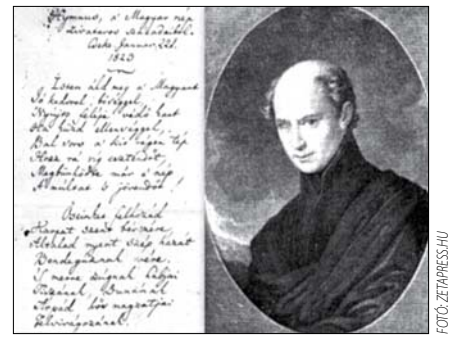 Hymnus, a' Magyar nép
zivataros századaiból.
Cseke, Januar. 22d.
1823
Isten áld meg a' Magyart
Jó kedvvel, bőséggel,
Nyújts feléje védő kart
Ha küzd ellenséggel;
Bal sors a' kit régen tép
Hozz rá víg esztendőt,
Megbünhödte már a' nép
A' múltat 's jövendőt!
Őseinket felhozád
Kárpát szent bérczére,
Általad nyert szép hazát
Bendegúznak vére.
'S merre zúgnak habjai
Tiszának, Dunának
Árpád hős magzatjai
Felvirágozának.
FOTÓ: ZETAPRESS.HU